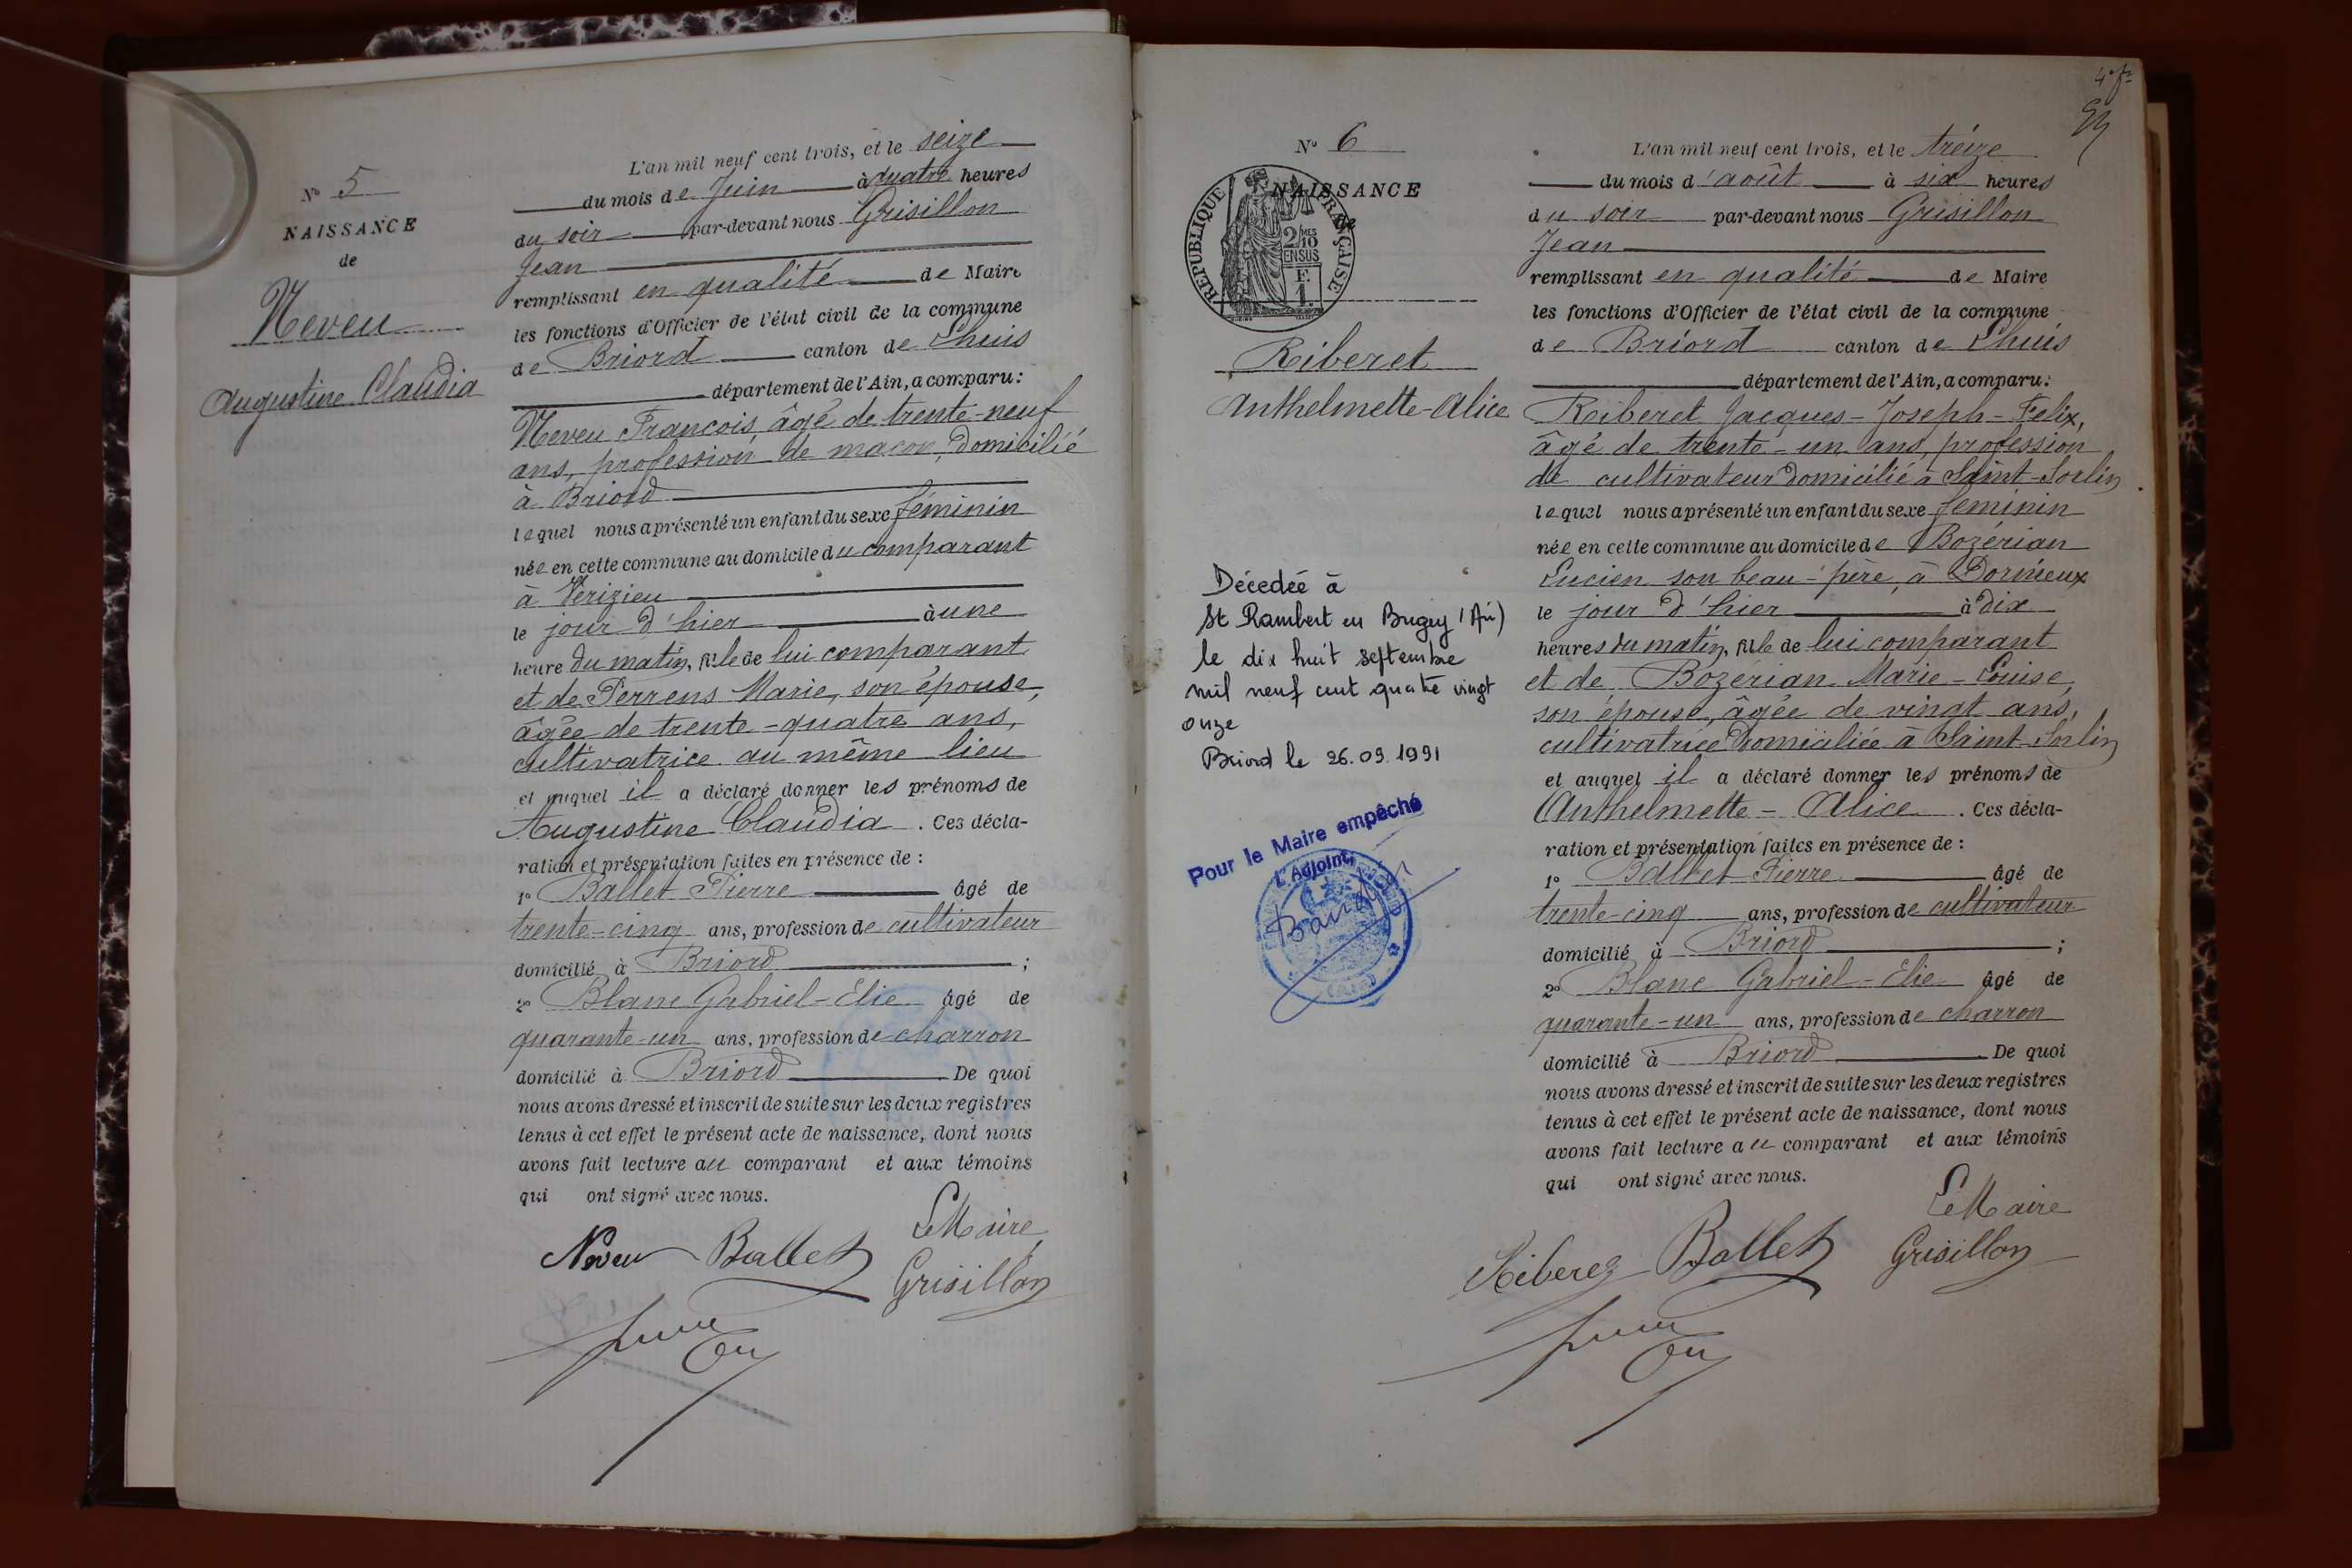 N° 5
NAISSANCE
de
Neveu
Augustine Claudia
L'an mil neuf cent trois, et le seize
du mois de Juin à quatre heures
du soir par-devant nous Grisillon
Jean
remplissant en qualité de Maire
les fonctions d'Officier de l'état civil de la commune
de Briord canton de Lhuis
département de l'Ain, a comparu :
Neveu Francois, âgé de trente-neuf
ans, profession de macon, domicilié
à Briord
lequel nous a présenté un enfant du sexe féminin
née en cette commune au domicile du comparant
à Vérizieu
le jour d'hier à une
heure du matin, fille de lui comparant
et de Perrens Marie, son épouse,
âgée de trente-quatre ans,
cultivatrice au même lieu
et auquel il a déclaré donner les prénoms de
Augustine Claudia. Ces décla-
ration et présentation faites en présence de :
1° Ballet Pierre âgé de
trente-cinq ans, profession de cultivateur
domicilié à Briord ;
2° Blanc Gabriel-Elie âgé de
quarante-un ans, profession de charron
domicilié à Briord De quoi
nous avons dressé et inscrit de suite sur les deux registres
tenus à cet effet le présent acte de naissance, dont nous
avons fait lecture au comparant et aux témoins
qui ont signé avec nous.
Le Maire,
Neveu Ballet Grisillon
4e f
N° 6
NAISSANCE
de
REPUBLIQUE FRANÇAISE
2/10 MES
EN SUS
F.
1.
Riberet
Anthelmette-Alice
Décedée à
St Rambert en Bugey (Ain)
le dix huit septembre
mil neuf cent quatre vingt
onze
Briord le 26.09.1991
Pour le Maire empêché
L'Adjoint,
L'an mil neuf cent trois, et le tréize
du mois d'août à six heures
du soir par-devant nous Grisillon
Jean
remplissant en qualité de Maire
les fonctions d'Officier de l'état civil de la commune
de Briord canton de Lhuis
département de l'Ain, a comparu :
Riberet Jacques-Joseph-Felix,
âgé de trente-un ans, profession
de cultivateur domicilié à Saint-Sorlin
lequel nous a présenté un enfant du sexe féminin
née en cette commune au domicile de Bozérian
Lucien son beau-père, à Dormeux
le jour d'hier à dix
heures du matin, fille de lui comparant
et de Bozérian Marie-Louise,
son épouse, âgée de vingt ans,
cultivatrice domiciliée à Saint-Sorlin
et auquel il a déclaré donner les prénoms de
Anthelmette-Alice. Ces décla-
ration et présentation faites en présence de :
1° Ballet Pierre âgé de
trente-cinq ans, profession de cultivateur
domicilié à Briord ;
2° Blanc Gabriel-Elie âgé de
quarante-un ans, profession de charron
domicilié à Briord De quoi
nous avons dressé et inscrit de suite sur les deux registres
tenus à cet effet le présent acte de naissance, dont nous
avons fait lecture au comparant et aux témoins
qui ont signé avec nous.
Le Maire
Riberez Ballet Grisillon